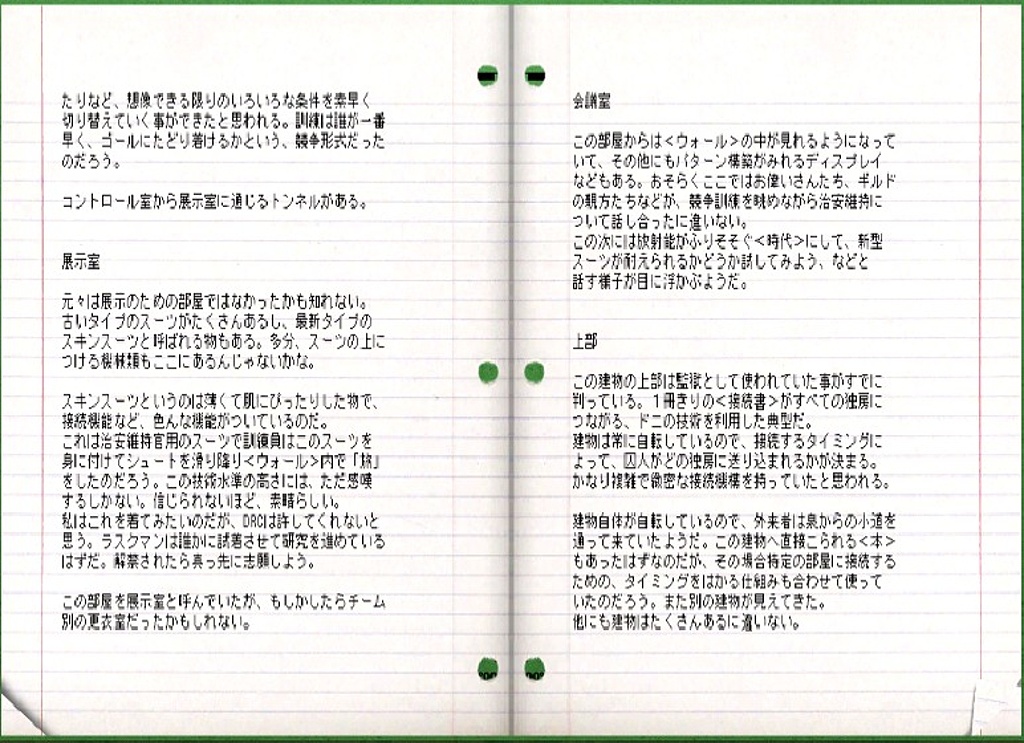 たりなど、想像できる限りのいろいろな条件を素早く
切り替えていく事ができたと思われる。訓練は誰が一番
早く、ゴールにたどり着けるかという、競争形式だった
のだろう。
コントロール室から展示室に通じるトンネルがある。
展示室
元々は展示のための部屋ではなかったかも知れない。
古いタイプのスーツがたくさんあるし、最新タイプの
スキンスーツと呼ばれる物もある。多分、スーツの上に
つける機械類もここにあるんじゃないかな。
スキンスーツというのは薄くて肌にぴったりした物で、
接続機能など、色んな機能がついているのだ。
これは治安維持官用のスーツで訓練員はこのスーツを
身に付けてシュートを滑り降り<ウォール>内で「旅」
をしたのだろう。この技術水準の高さには、ただ感嘆
するしかない。信じられないほど、素晴らしい。
私はこれを着てみたいのだが、DRCは許してくれないと
思う。ラスクマンは誰かに試着させて研究を進めている
はずだ。解禁されたら真っ先に志願しよう。
この部屋を展示室と呼んでいたが、もしかしたらチーム
別の更衣室だったかもしれない。
会議室
この部屋からは<ウォール>の中が見れるようになって
いて、その他にもパターン構築がみれるディスプレイ
などもある。おそらくここではお偉いさんたち、ギルド
の親方たちなどが、競争訓練を眺めながら治安維持に
ついて話し合ったに違いない。
この次には放射能がふりそそぐ<時代>にして、新型
スーツが耐えられるかどうか試してみよう、などと
話す様子が目に浮かぶようだ。
上部
この建物の上部は監獄として使われていた事がすでに
判っている。1冊きりの<接続書>がすべての独房に
つながる、ドニの技術を利用した典型だ。
建物は常に自転しているので、接続するタイミングに
よって、囚人がどの独房に送り込まれるかが決まる。
かなり複雑で緻密な接続機構を持っていたと思われる。
建物自体が自転しているので、外来者は泉からの小道を
通って来ていたようだ。この建物へ直接こられる<本>
もあったはずなのだが、その場合特定の部屋に接続する
ための、タイミングをはかる仕組みも合わせて使って
いたのだろう。また別の建物が見えてきた。
他にも建物はたくさんあるに違いない。